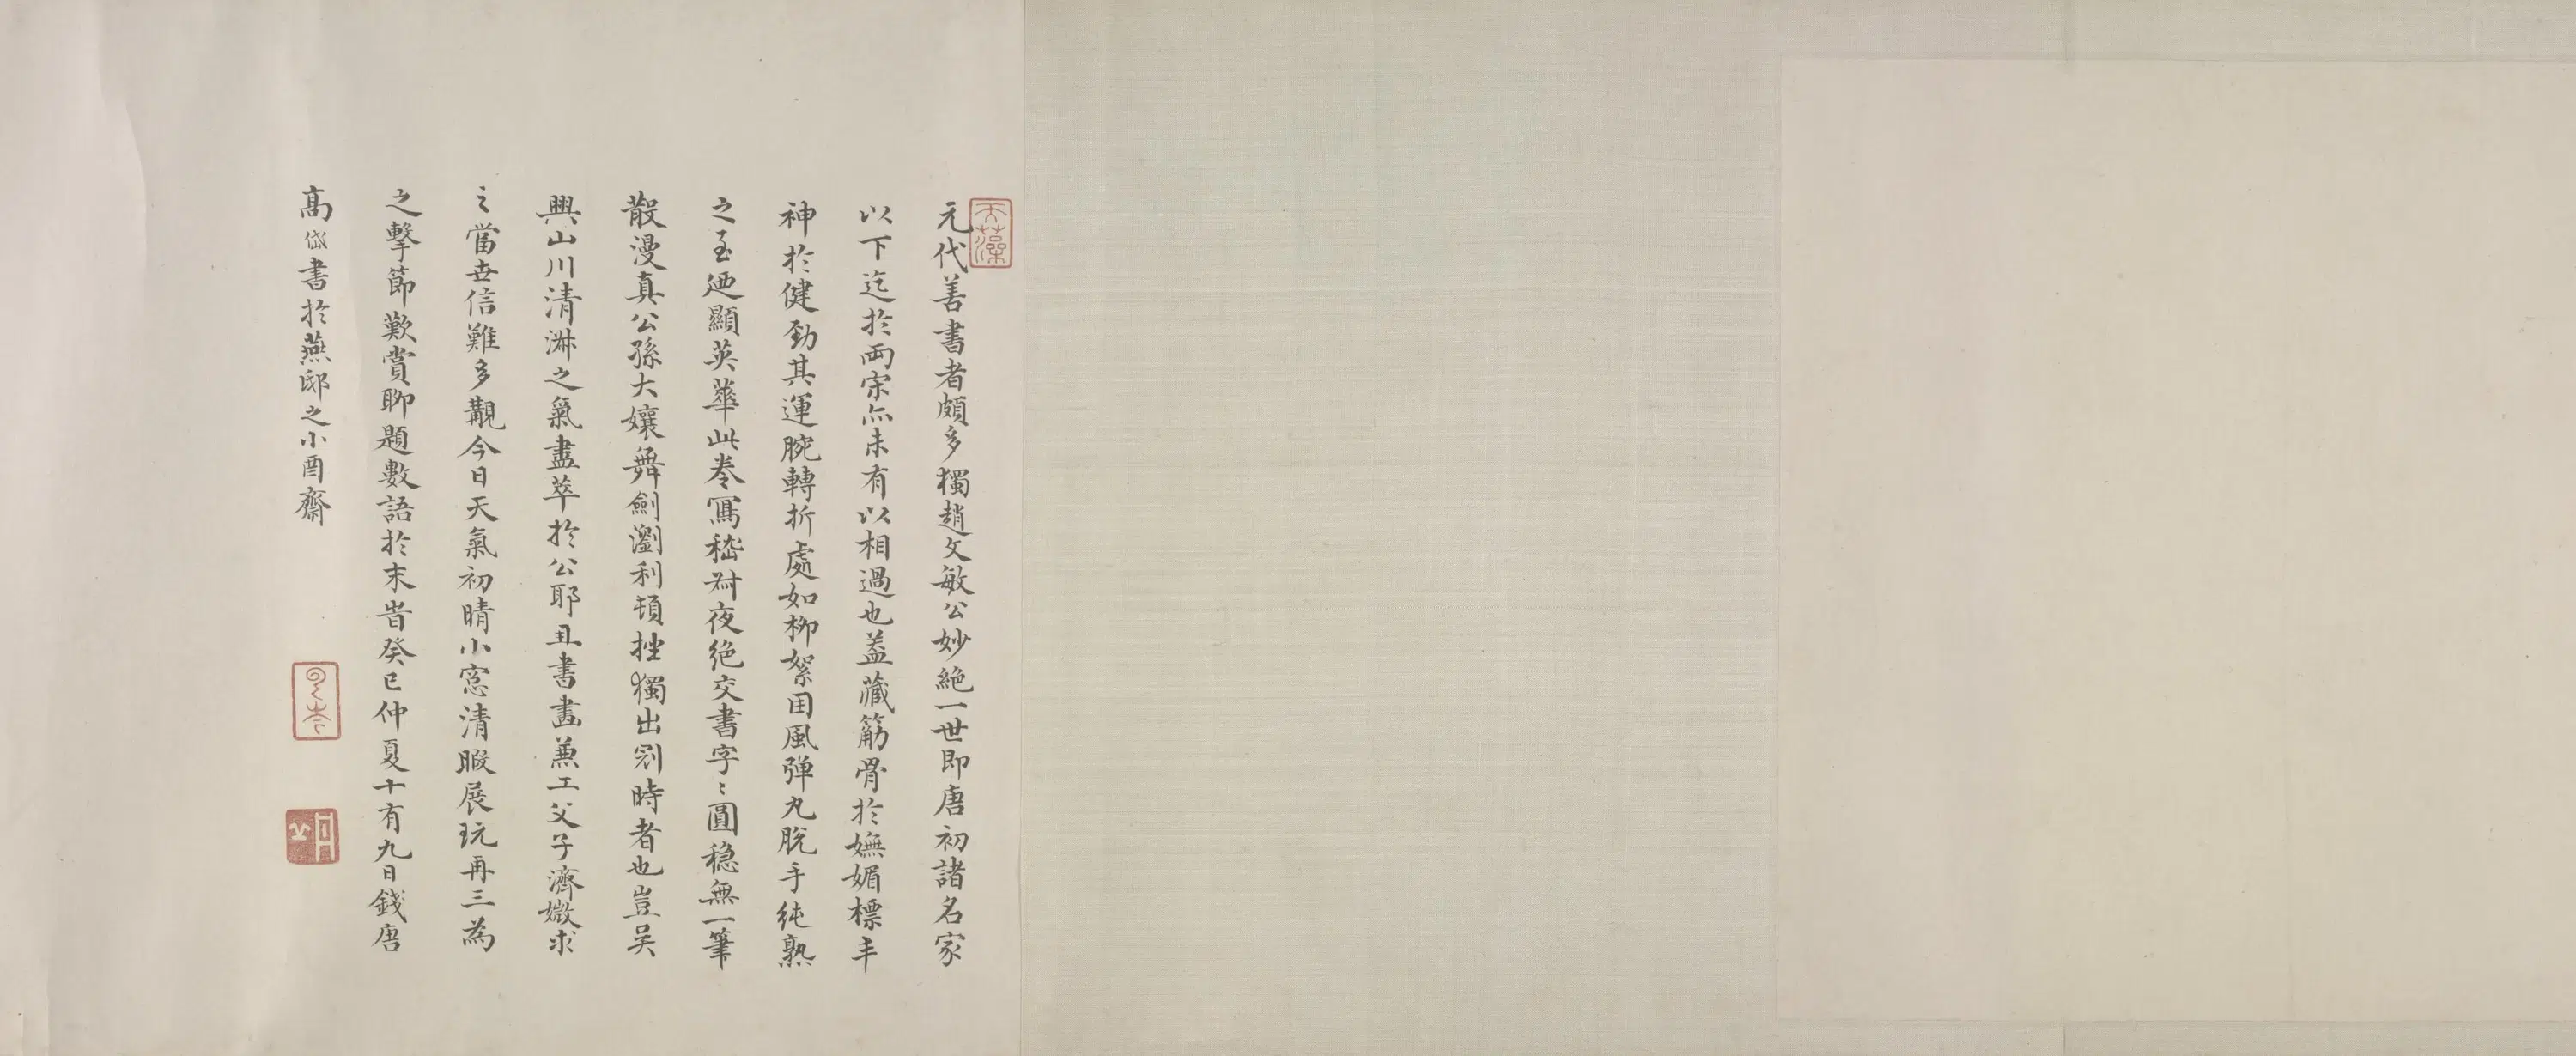 元代善書者頗多獨趙文敏公妙絕一世即唐初諸名家
以下迄於両宋亦未有以相過也葢藏筋骨於嫵媚標丰
神於健勁其運腕轉折處如柳絮因風弹丸脫手純熟
之至廼顯英華此卷寫嵇叔夜絕交書字〻圓穏無一筆
散漫真公孫大孃舞劍瀏利頓挫獨出冠時者也豈吴
興山川清淋之氣盡萃於公耶且書畫兼工父子濟媺求
〻當世信難多覯今日天氣初晴小窓清暇展玩再三為
之擊節歎賞聊題數語於末旹癸巳仲夏十有九日錢唐
高岱書於燕邸之小酉齋
天藻